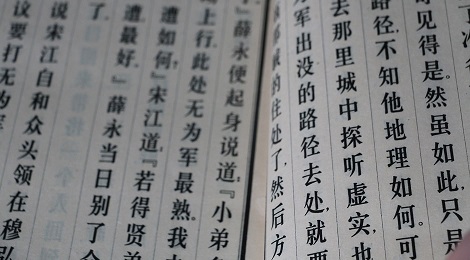 见得是。然虽如此,只是
路径,不知他地理如何。可
去那里城中探听虚实,也
军出没的路径去处,就要
那贼的住处了,然后方
』薛永便起身说道:『小弟
上行,此处无为军最熟。我
遭如何?』宋江道:『若得贤弟
遭最好。』薛永当日别了
了。
说宋江自和众头领在穆弘
议要打无为军